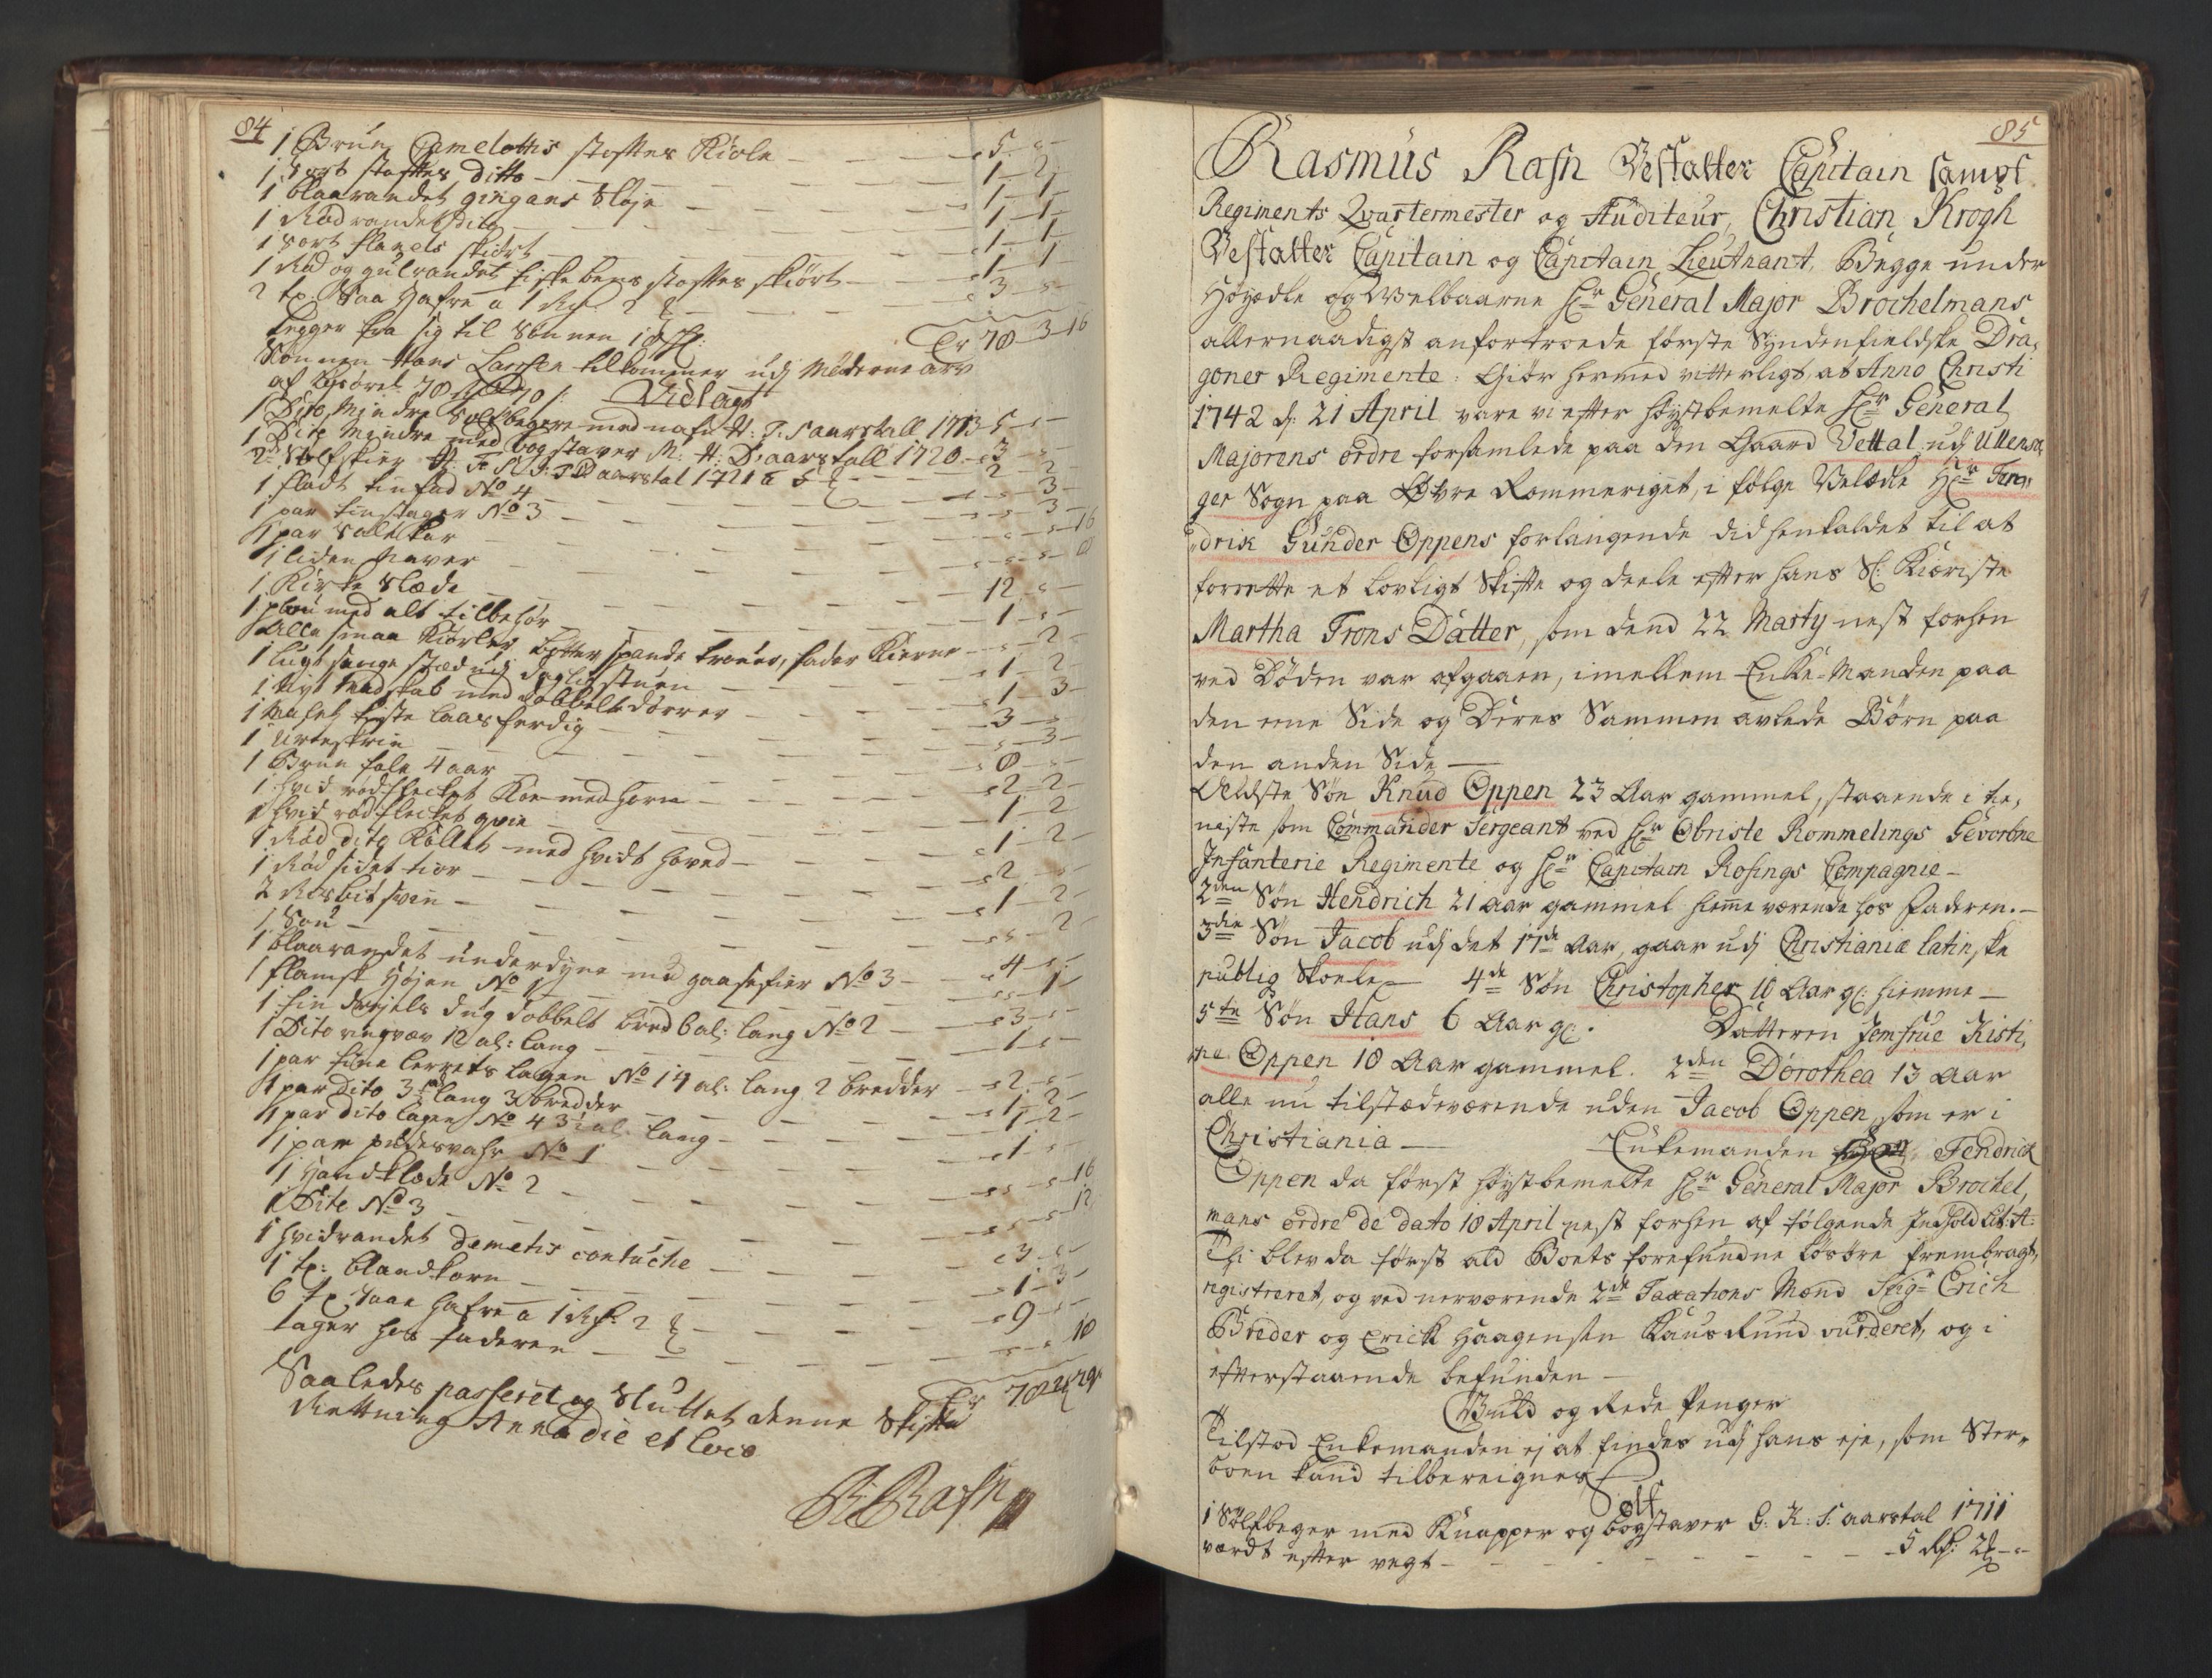 84
1 Brun Camelottis stoffes Kiole - - - 5 - -
1 sort stoffes ditto - - - 1 - 2 -
1 blaarandet gingans Trøje - - - 1 - 1 -
1 Rød randet dito - - - 1 - 1 -
1 sort flanels skiørt - - - 1 - 1 -
1 Rød og gulrandet fiskebens stoffes skiørt - - - 1 - 1 -
2 tr. Saa Hafre a 1 Rd. 2 - - - 3 - -
Legger fra sig til Sønnen 18 s:
Er 78 - 3 - 16
Sønnen Hans Larssen tilkommer udj Møderne arv
af Løsøret 78 10 s. Udlagt
1 Sølfbeger med nafn H: T. S aarstall 1713 5 - -
1 Dito Mindre med bogstaver M: H: D: aarstall 1720 - 3 -
2de Sølfskier aarstal 1721 a 5 - - 2 - 2 -
1 fladt tinfad No 4 - - - 3 -
1 par tinstager No 3 - - - 3 -
1 par Saltkar - - - 16
1 liden - - - 8
1 Kirke Slæde - - - 12 - -
1 ploŭ med alt tilbehør - - - 1 - -
Alle smaa Kiørler, bøtter, spande, trouer, fader Kierne - - 2 -
1 lugt senge sted udj dagligstuen - - - 1 - 2 -
1 Nyt Madskab med dobbelt dörrer - - - 1 - 3 -
1 kiste laas ferdig - - - 3 - -
1 Urteskrin - - - 3 -
1 Brun fole 4 aar - - - 8 - -
1 hvid rødflecket Koe med horn - - - 2 - 2 -
1 hvid rødflecket qvie - - - 1 - 2 -
1 Rød dito Kollet med hvidt hoved - - - 1 - 2 -
1 Rød sidet tior - - - 2 - -
2 svin - - - 1 - 2 -
1 Soŭ - - - 2 -
1 blaarandet underdyne med gaasefier No 3 - - 4 - -
1 flamsk Høyen No 1 - - - 1 -
1 fin dreyels dug dobbelt bred 6 al: lang No 2 - - 3 - -
1 Dito ringvær 12 al: lang - - - 1 - -
1 par fine lerrets lagen No 1 4 al: lang 2 bredder - 2 - -
1 par Dito 3 lang 3 bredder - - - 1 - 2 -
1 par dito lagen No 4 3½ al. lang - - - 1 - 2 -
1 par pudesvahr No 1 - - - 1 - -
1 Handklæde No 2 - - - 16
1 Dito No 3 - - - 12
1 hvidrandet demetis contuche - - - 3 - -
1 tr: blandkorn - - - 1 - 3 -
6 tr. saae hafre a 1 Rd: 2 - - - 9 - -
tager hos faderen - - - 18
Er 78
Saaledes passeret og Sluttet denne Skifte
Rettning Anno die et loco
R Rafn

85
Rasmüs Rafn Bestalter Capitain sampt
Regiments Qvartermester og Auditeur, Christian Krogh
Bestalter Capitain og Capitain Lieutnant, Begge under
Høyædle og Welbaarne Hr General Major Brochelmans
allernaadigst anfortroede første Syndenfieldske Dra-
goner Regimente: Giør hermed vitterligt, at Anno Christi
1742 d: 21 April vare vi efter høystbemelte Hr General
Majorens ordre forsamlede paa den Gaard Vettal udj Ullensa-
ger Sogn paa Øvre Rommeriget, i følge Velædle Hr Fen-
drik Gunder Oppens forlangende did henkaldet til at
forrette et lovligt Skifte og deele efter hans Sl: Kiæriste
Martha Trons Datter, som dend 22 Marty nest forhen
ved Døden var afgaaen, imellem Enke-Manden paa
den eene Side og Deres Sammen avlede Børn paa
den anden Side -
Eldste Søn Knud Oppen 23 Aar gammel, staaende i tie-
neste som Commander Sergeant ved Hr Obriste Rommelings Gevorbne
Infanterie Regimente og Hr Capitain Rosings Compagnie -
2den Søn Hendrich 21 aar gammel hieme værende hos Faderen. -
3die Søn Jacob udj det 17de Aar, gaar udj Christiania latinske
publig Skoele - 4de Søn Christopher 10 Aar gl: hiemme -
5te Søn Hans 6 Aar gl: Datteren Jomfrue Kisti-
ne Oppen 18 Aar gammel. 2den Dorothea 13 Aar
alle nu tilstædeværende uden Jacob Oppen, som er i
Christiania - Enkemanden Fendrick
Oppen da først høystbemelte Hr General Major Brochel-
mans ordre de dato 18 April nest forhen af følgende Indhold Lit: A:
Thi blev da først ald Boets forefundne løsöre frembragt,
registreret, og ved nerværende 2de Taxations Mænd Sigr Erich
Breder og Erick Haagensen Kaŭsrŭnd vurderet, og i
efterstaaende befunden -
Guld og Rede Penger
Tilstod Enkemanden ej at findes udj hans eje, som Ster-
boen kand tilbereignes
Sölf
1 Sölfbeger med Knapper og bogstaver G: K: S: aarstal 1711
værdt efter vegt - - - 5 Rd: 2 - -